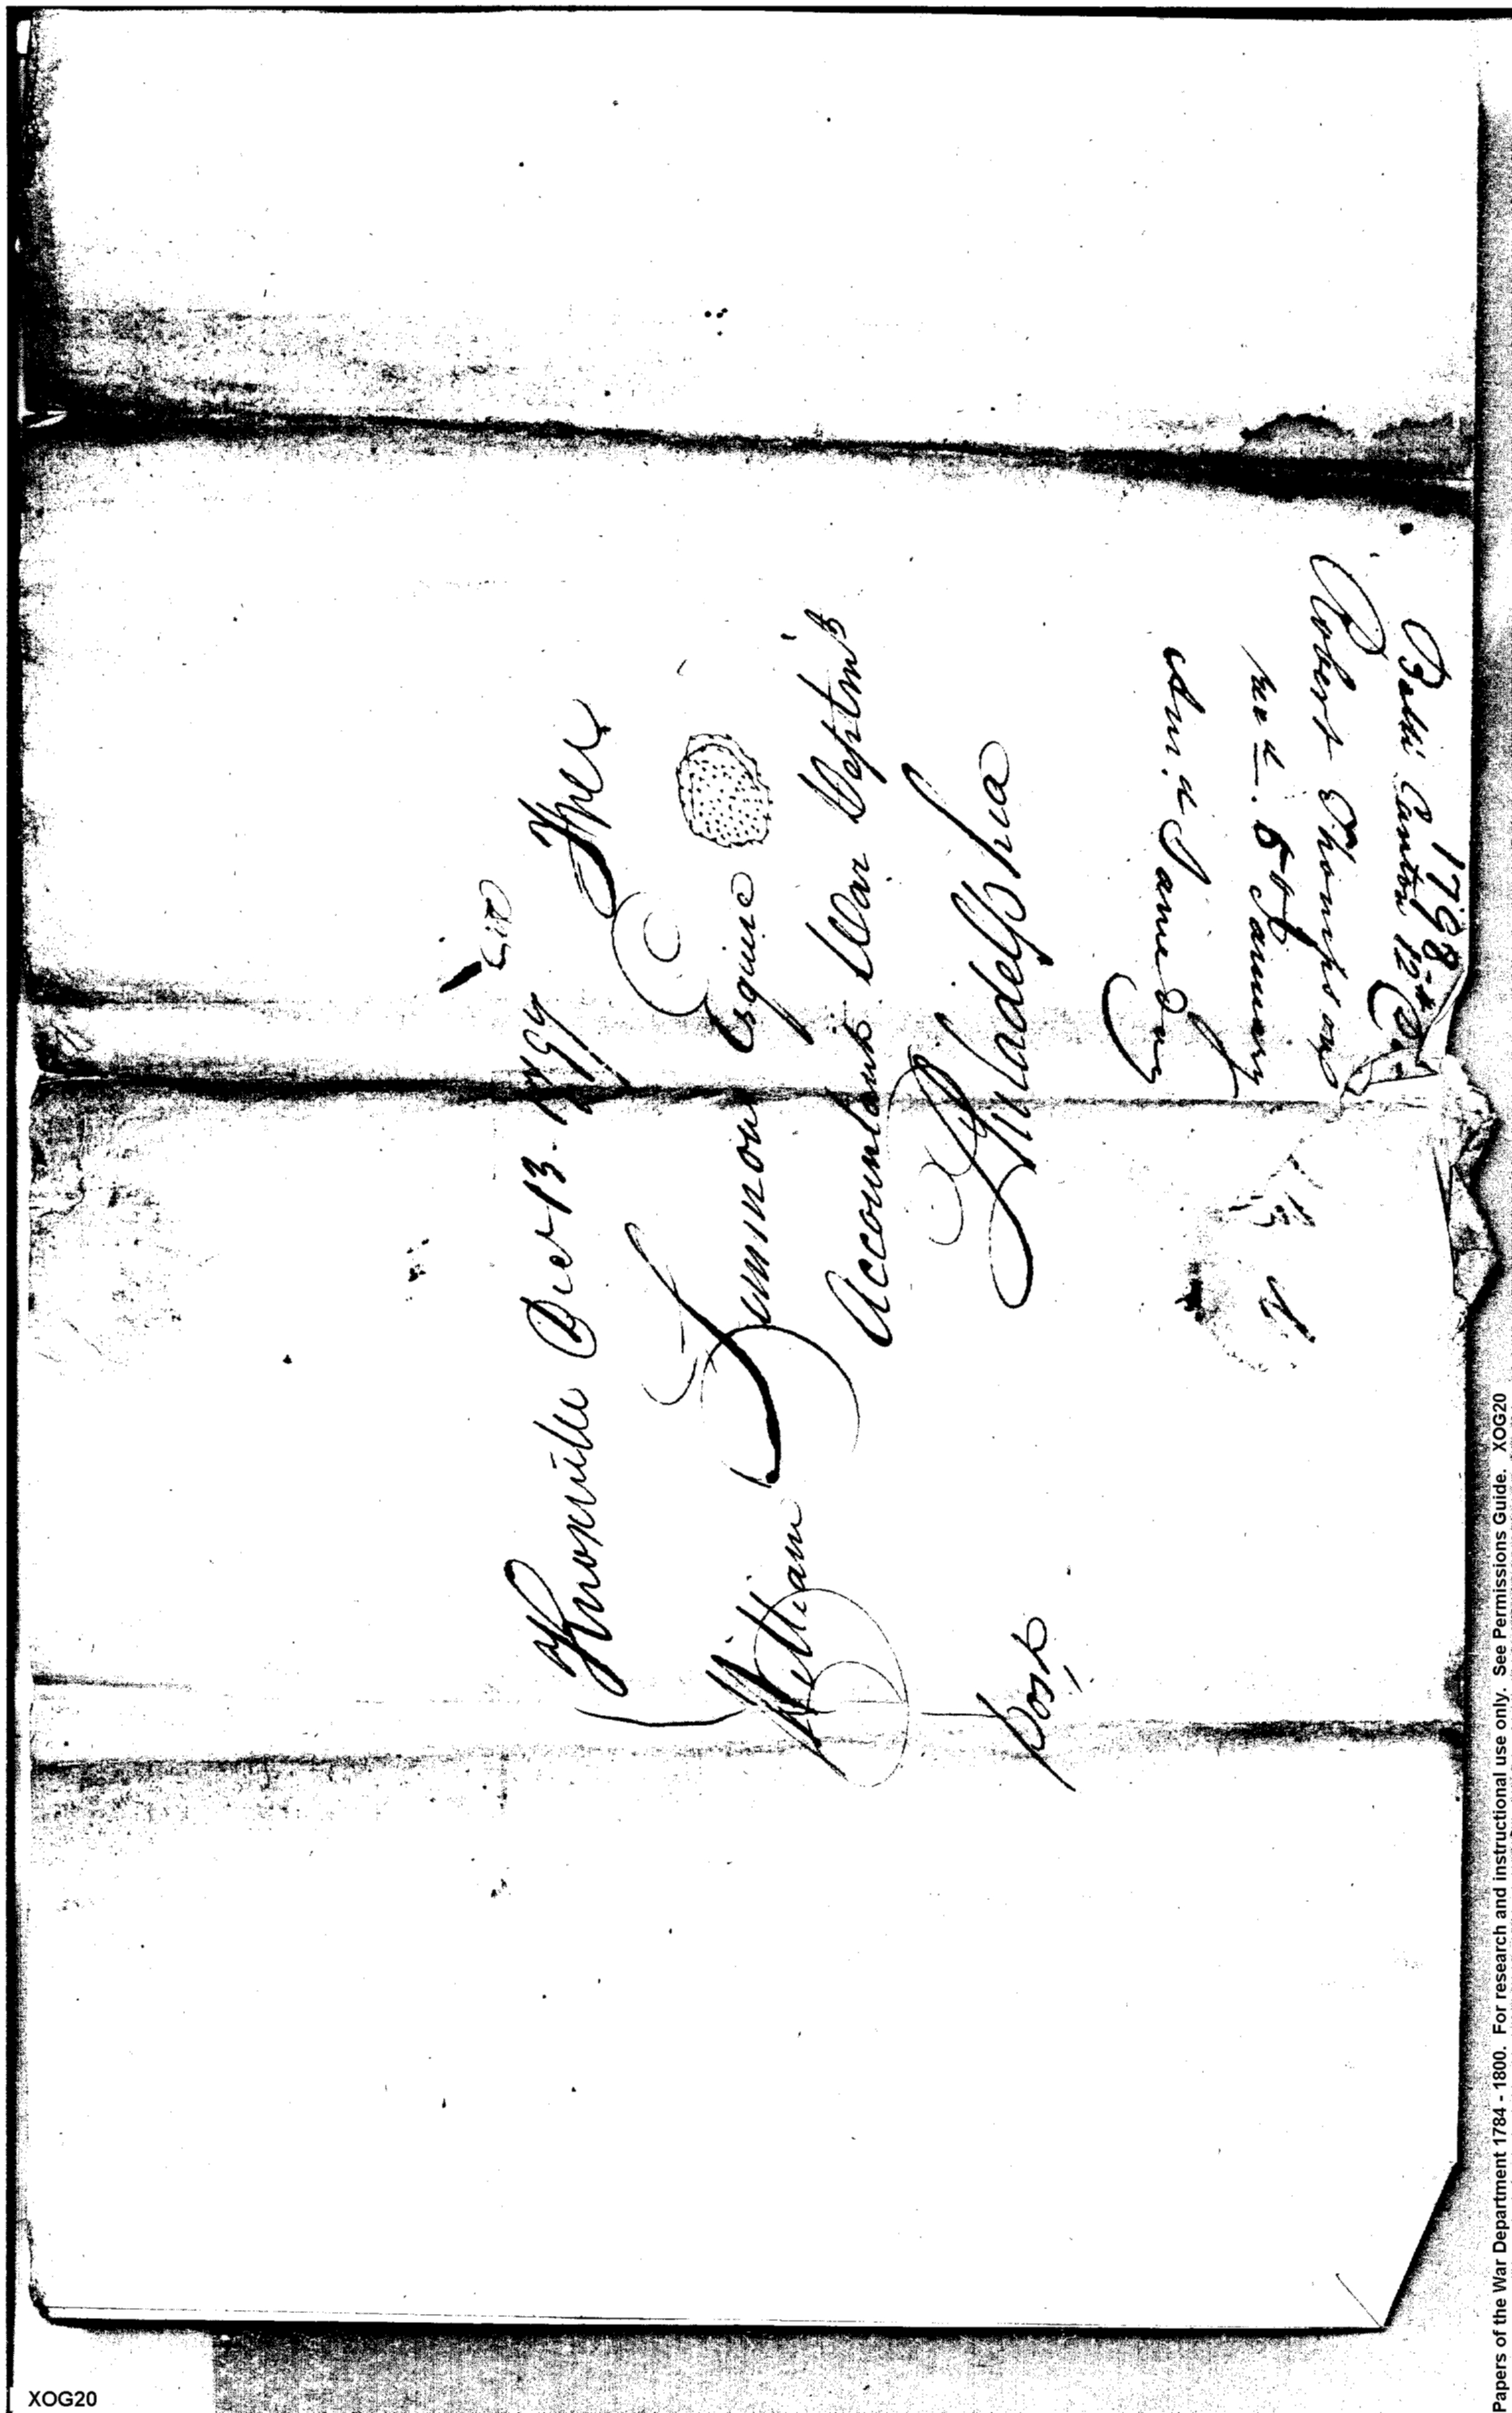 Knoxville Decr 13. 1797 Free
William Simmons Esquire
Accountant War Deptmt
Philadelphia
post
1798
Robert Thompson
recd. 5th January
Ansd Same Day
XOG20
Papers of the War Department 1784 - 1800. For research and instructional use only. See Permissions Guide. XOG20